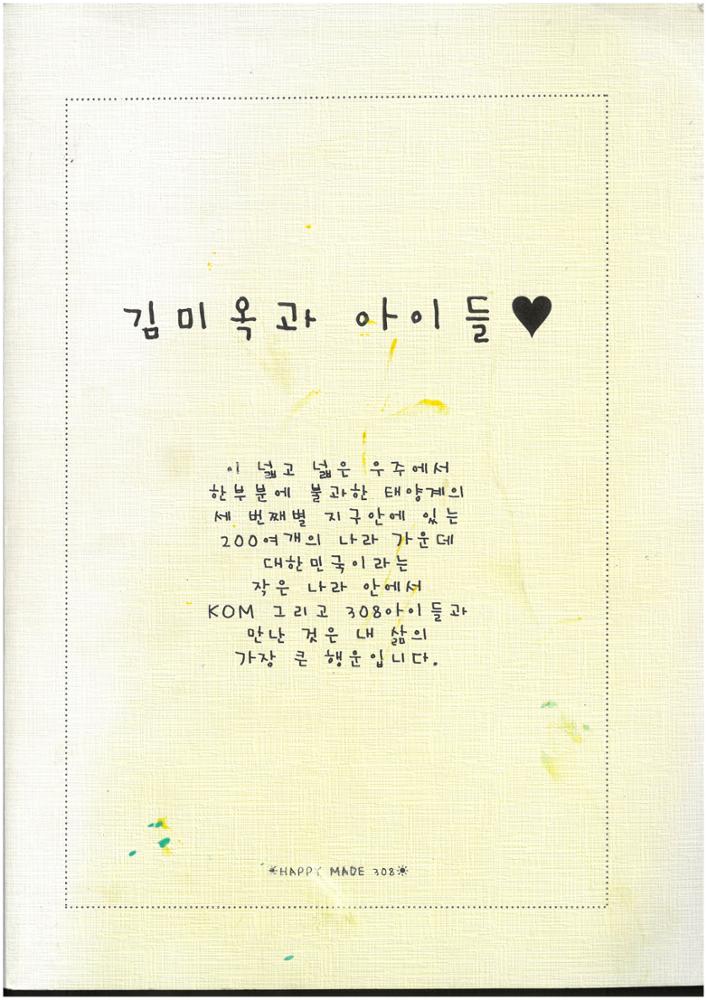 김미옥과 아이들♥
이 넓고 넓은 우주에서
한부분에 불과한 태양계의
세 번째별 지구안에 있는
200여개의 나라 가운데
대한민국이라는
작은 나라 안에서
KOM 그리고 308아이들과
만난 것은 내 삶의
가장 큰 행운입니다.
☀HAPPY MADE 308☀